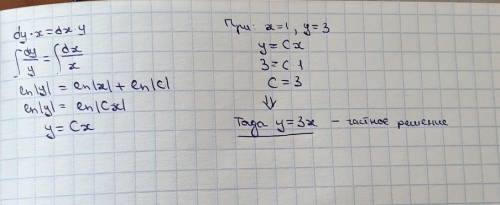 dy·x=dx·y
∫dy/y=∫dx/x
ln|y|=ln|x|+ln|C|
ln|y|=ln|Cx|
y=Cx
При: x=1, y=3
y=Cx
3=C·1
C=3
⇓
Тада y=3x – частное решение